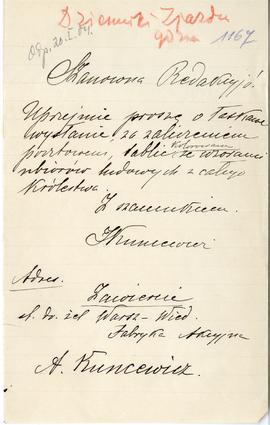 Odp. 20. I. 04.
Dziennik Zjazdu
1167
Szanowna Redakcyjo
Uprzejmie proszę o łaskawe
wysłanie, za zaliczeniem
pocztowem, tablic
kolorowane
ze wzorami
ubiorów ludowych z całego
Królestwa.
Z szacunkiem
AKuncewicz
Adres.
Zawiercie
st. dr. żel. Warsz-Wied.
Fabryka Akcyjna
A. Kuncewicz.